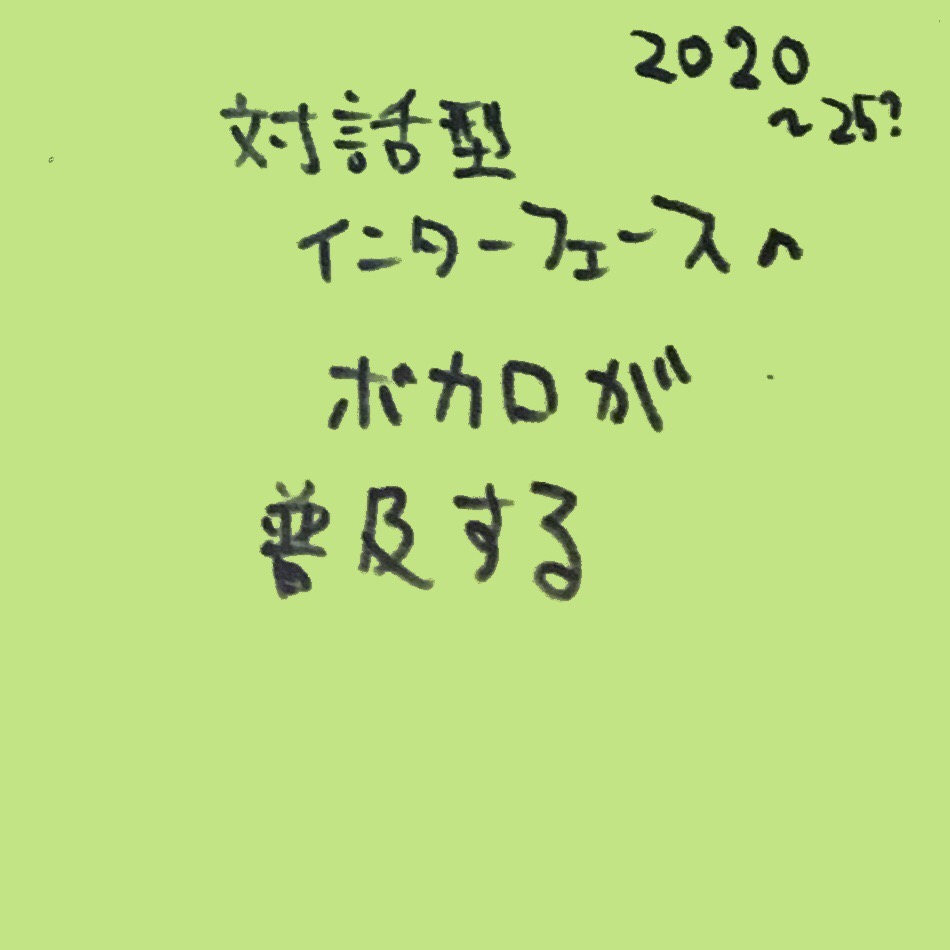 2020
~25?
対話型
インターフェースへ
ボカロが
普及する